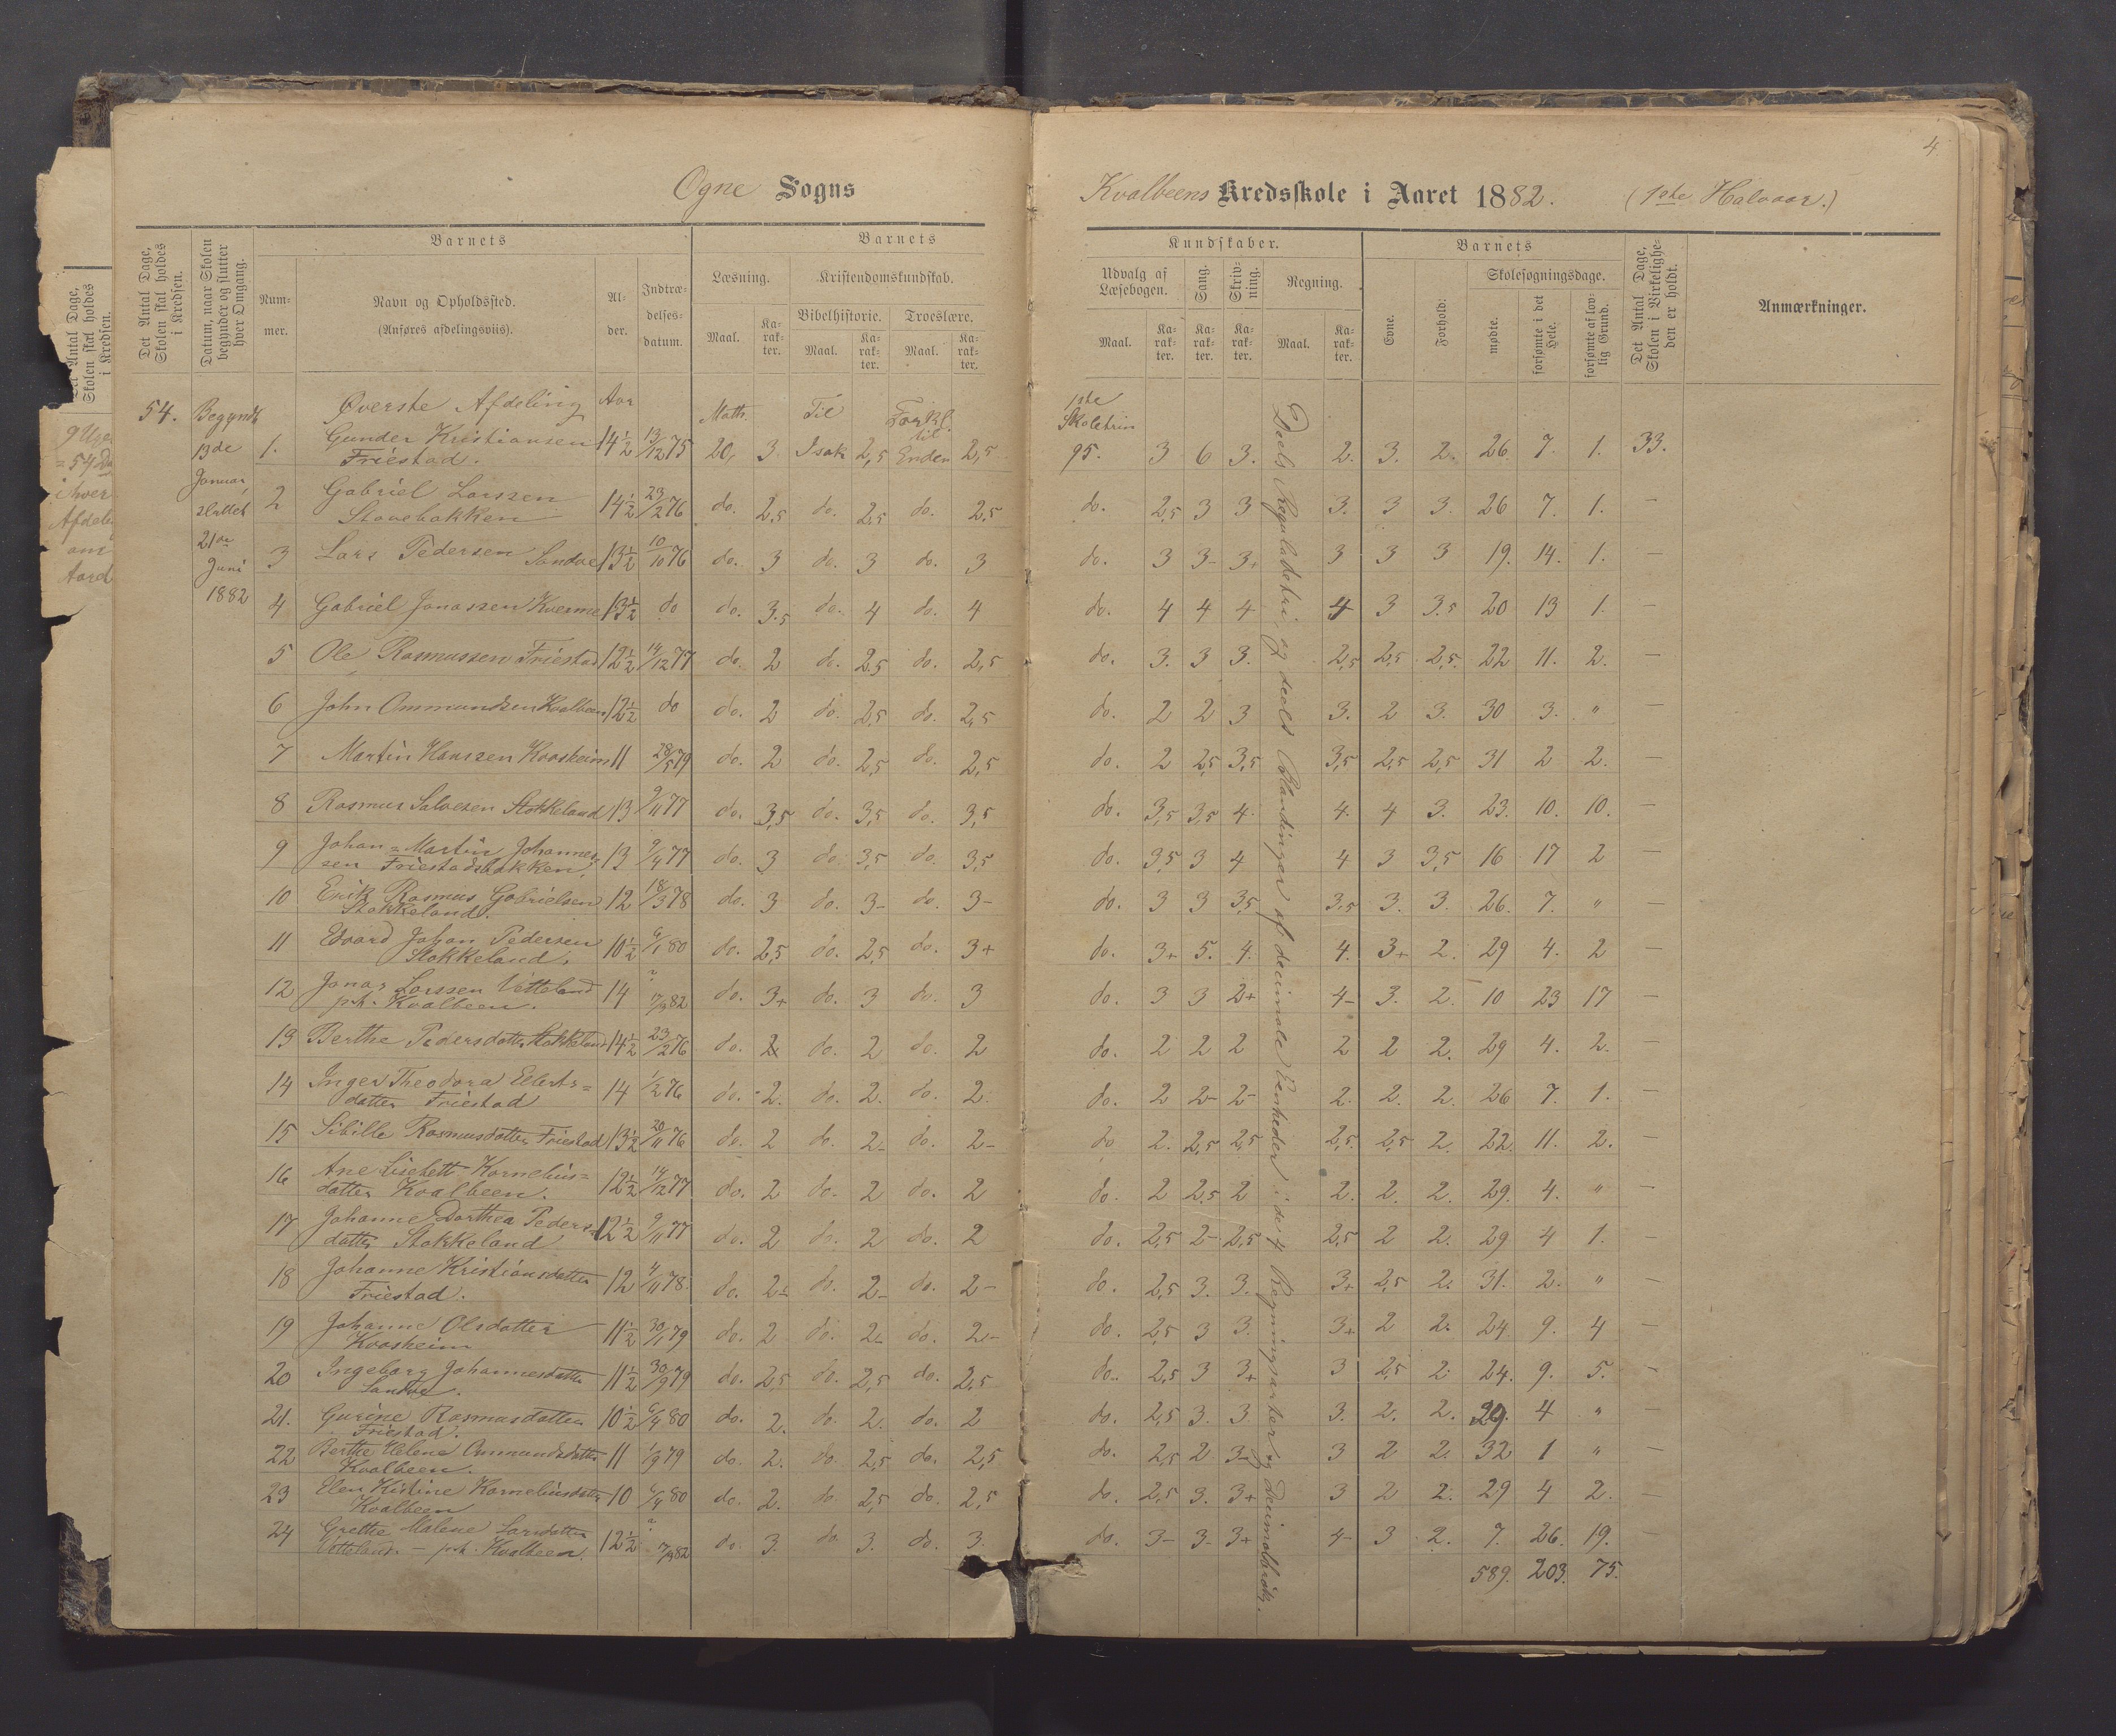 4
Ogne Sogns
Kvalbeens Kredsskole i Aaret 1882. (1ste Halvaar.)
Det Antal Dage, Skolen skal holdes i Kredsen.
Datum, naar Skolen begynder og slutter hver Omgang.
Barnets
Nummer.
Navn og Opholdssted.
(Anføres afdelingsviis).
Alder.
Indtrædelsesdatum.
Barnets
Læsning.
Kristendomskundskab.
Bibelhistorie.
Troeslære.
Maal.
Karakter.
Maal.
Karakter.
Maal.
Karakter.
Kundskaber.
Udvalg af Læsebogen.
Sang.
Skrivning.
Regning.
Maal.
Karakter.
Karakter.
Karakter.
Maal.
Karakter.
Barnets
Evne.
Forhold:
Skolesøgningsdage.
mødte.
forsømte i det Hele.
forsømte af lovlig Grund.
Det Antal Dage, Skolen i Virkeligheden er holdt.
Anmærkninger.
54.
Begyndt
13de
Januar,
sluttet
21de
Juni
1882
Øverste Afdeling Aar
Math. Til Forkl. til
1ste Skoletrin
1. Gunder Kristiansen Friestad. 14½ 13/12 75 20, 3. Isak 2,5 Enden 2,5 95. 3 6 3. 2. 3. 2. 26. 7. 1. 33.
2 Gabriel Larssen Stavebakken 14½ 23/2 76 do. 2,5 do. 2,5 do. 2,5 do. 2,5 3 3 3. 3 3. 26 7. 1. —
3 Lars Pedersen Sandve 13½ 10/10 76 do. 3 do. 3 do. 3 do. 3 3- 3+ 3 3 3 19. 14. 1. —
4 Gabriel Jonassen Kverme 13½ do do. 3,5 do. 4 do. 4 do. 4 4 4 4 3 3,5 20 13 1. —
5 Ole Rasmussen Friestad 12½ 14/12 77 do. 2 do. 2,5 do. 2,5 do. 3. 3 3. 2,5 2,5 2,5. 22 11. 2. —
6 John Ommundsen Kvalbeen 12½ do do. 2 do. 2,5 do. 2,5 do. 2 2 3 3. 2 3. 30 3. " —
7 Martin Hanssen Kvasheim 11 28/5 79 do. 2 do. 2,5 do. 2,5 do. 2 2,5 3,5 3,5 2,5 2,5 31 2 2. —
8 Rasmus Salvesen Stokkeland 13 9/11 77 do. 3,5 do. 3,5 do. 3,5 do. 3,5 3,5 4. 4. 4 3. 23. 10. 10. —
9 Johan=Martin Johannessen Friestadsbakken. 13 9/4 77 do. 3 do. 3,5 do. 3,5 do. 3,5 3 4 4 3 3,5 16 17 2 —
10 Erik Rasmus Gabrielsen Stokkeland. 12 18/3 78 do. 3 do. 3- do. 3- do. 3 3 3,5 3,5 3. 3. 26. 7. " —
11 Edvard Johan Pedersen Stokkeland. 10½ 6/1 80 do. 2,5 do. 2,5 do. 3+ do. 3+ 5. 4. 4. 3+ 2. 29 4. 2 —
12 Jonas Larssen Vetteland p.t. Kvalbeen. 14 82 do. 3+ do. 3 do. 3 do. 3 3 2+ 4- 3. 2. 10 23 17 —
13 Berthe Pedersdatter Stokkeland 14½ 23/2 76 do. 2 do. 2 do. 2 do. 2 2 2 2 2 2. 29 4. 2. —
14 Inger Theodora Eilertsdatter Friestad 14 1/2 76 do. 2. do. 2. do. 2. do. 2 2- 2- 2. 2. 2. 26 7. 1. —
15 Sibille Rasmusdatter Friestad 13½ 20/11 76 do. 2 do. 2- do. 2- do 2. 2,5 2,5 2,5. 2,5 2. 22. 11. 2. —
16 Ane Lisebett Korneliusdatter Kvalbeen. 12½ 14/12 77 do. 2 do. 2 do. 2 do. 2 2,5 2 2. 2. 2. 29. 4. " —
17 Johanne Dorthea Pedersdatter Stokkeland 12½ 9/11 77 do. 2 do. 2 do. 2 do. 2,5 2- 2,5 2,5 2 2. 29 4 1. —
18 Johanne Kristiansdatter Friestad. 12 4/11 78. do. 2- do. 2- do. 2- do. 2,5 3. 3. 3+ 2,5 2. 31. 2. " —
19 Johanne Olsdatter Kvasheim 11½ 30/1 79 do. 2 do. 2- do. 2- do. 2,5 3 3. 3+ 2 2. 24. 9. 4 —
20 Ingeborg Johannesdatter Sandve. 11½ 30/9 79 do. 2,5 do. 2,5 do. 2,5 do. 2,5 3 3+ 3 2,5 2. 24. 9. 5. —
21. Gurine Rasmusdatter Friestad. 10½ 6/4 80 do. 2. do. 2. do. 2 do. 2,5 3. 3 3. 2. 2. 29. 4 " —
22 Berthe Helene Ommundsdatter Kvalbeen. 11 1/9 79 do. 2. do. 2,5 do. 2,5 do. 2,5 2 3- 3 2 2. 32 1 " —
23 Elen Kistine Korneliusdatter Kvalbeen 10 6/4 80 do. 2. do. 2,5 do. 2,5 do. 2,5 3. 3+ 3 2 2. 29 4 2. —
24 Grethe Malene Larsdatter Vetteland - p.t. Kvalbeen. 12½ 82 do. 3. do. 3. do. 3. do. 3- 3- 3+ 4- 3 2. 7. 26. 19. —
589. 203. 75.
Deels Reguladetri og deels Blandinger af decimale Eenheder i de 4 Regningsarter og Decimalbrøk.
Det Antal Dage, Skolen skal holdes i Kredsen.
9 Uger
= 54 Da
i hver
Afdeli
om
Aaret